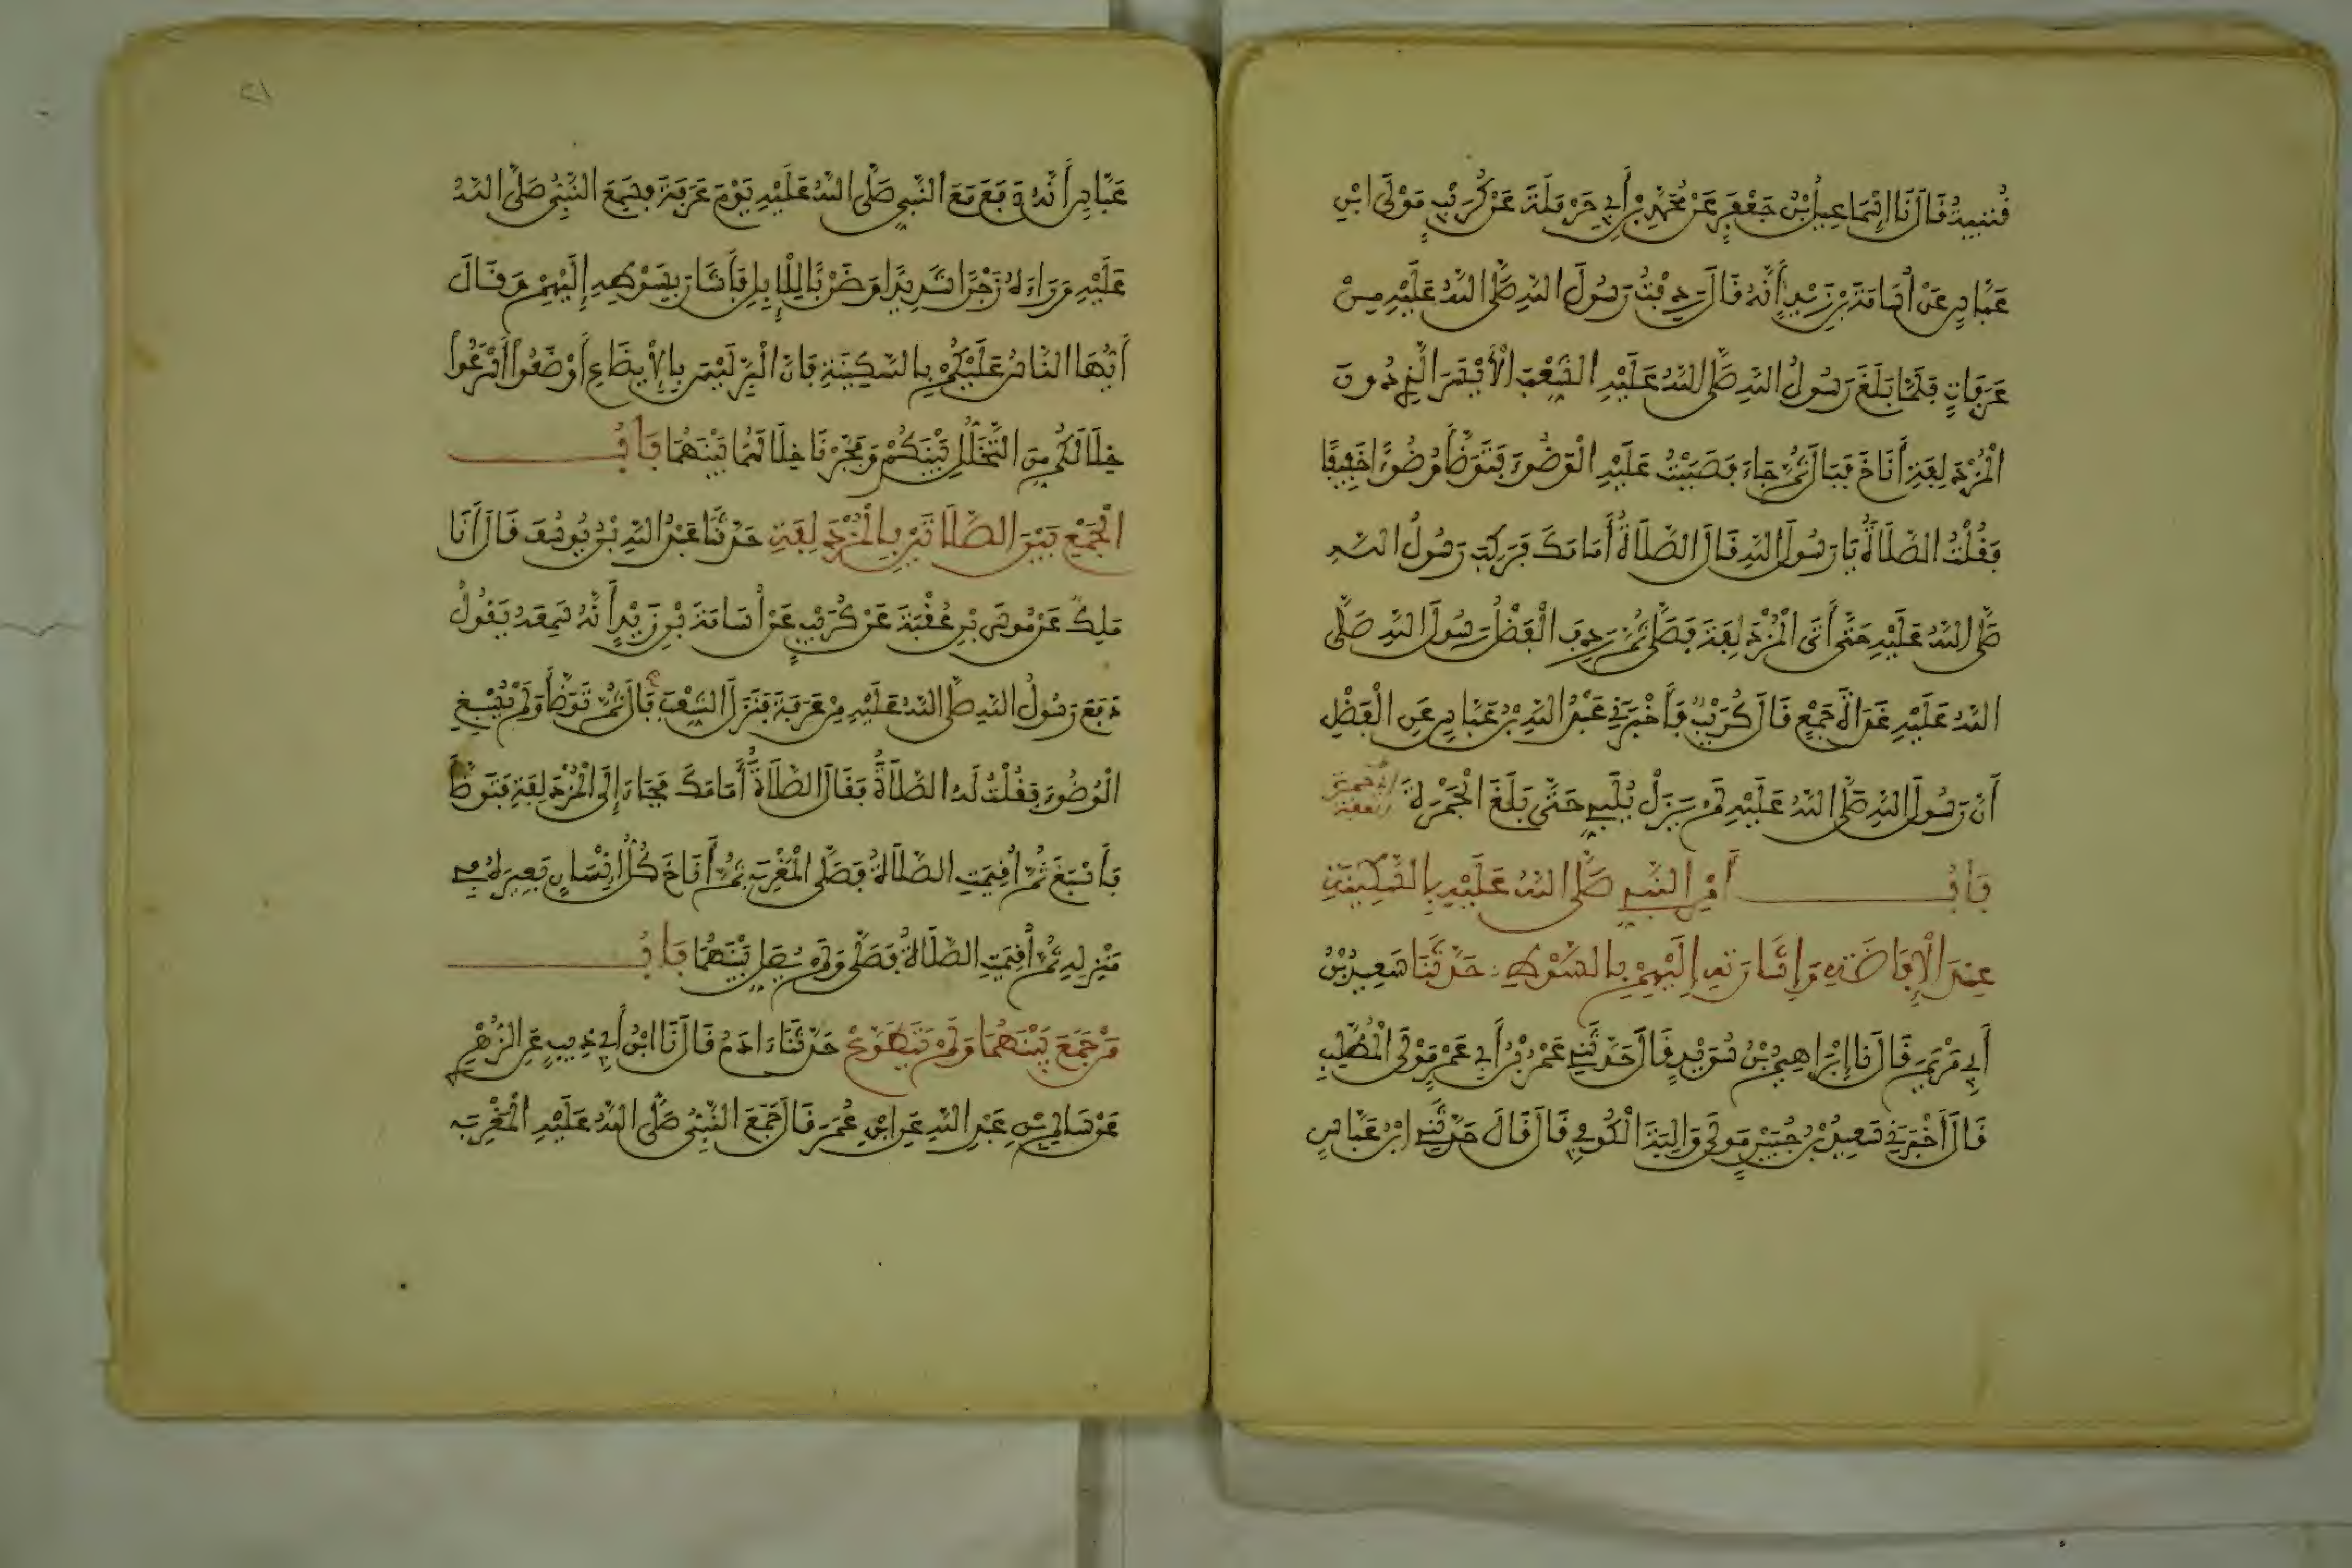 قُتَيْبَةُ قَالَ نَا إِسْمَاعِيلُ بْنُ جَعْفَرٍ عَنْ مُحَمَّدِ بْنِ أَبِي حَرْمَلَةَ عَنْ كُرَيْبٍ مَوْلَى ابْنِ
عَبَّاسٍ عَنْ أُسَامَةَ بْنِ زَيْدٍ أَنَّهُ قَالَ رَدِفْتُ رَسُولَ اللهِ صَلَّى اللهُ عَلَيْهِ مِنْ
عَرَفَاتٍ فَلَمَّا بَلَغَ رَسُولُ اللهِ صَلَّى اللهُ عَلَيْهِ الشِّعْبَ الْأَيْسَرَ الَّذِي دُونَ
الْمُزْدَلِفَةِ أَنَاخَ فَبَالَ ثُمَّ جَاءَ فَصَبَبْتُ عَلَيْهِ الْوَضُوءَ فَتَوَضَّأَ وُضُوءًا خَفِيفًا
فَقُلْتُ الصَّلَاةُ يَا رَسُولَ اللهِ قَالَ الصَّلَاةُ أَمَامَكَ فَرَكِبَ رَسُولُ اللهِ
صَلَّى اللهُ عَلَيْهِ حَتَّى أَتَى الْمُزْدَلِفَةَ فَصَلَّى ثُمَّ رَدِفَ الْفَضْلُ رَسُولَ اللهِ صَلَّى
اللهُ عَلَيْهِ غَدَاةَ جَمْعٍ قَالَ كُرَيْبٌ فَأَخْبَرَنِي عَبْدُ اللهِ بْنُ عَبَّاسٍ عَنِ الْفَضْلِ
أَنَّ رَسُولَ اللهِ صَلَّى اللهُ عَلَيْهِ لَمْ يَزَلْ يُلَبِّي حَتَّى بَلَغَ الْجَمْرَةَ
بَابُ أَمْرِ النَّبِيِّ صَلَّى اللهُ عَلَيْهِ بِالسَّكِينَةِ
عِنْدَ الْإِفَاضَةِ وَإِشَارَتِهِ إِلَيْهِمْ بِالسَّوْطِ حَدَّثَنَا سَعِيدُ بْنُ
أَبِي مَرْيَمَ قَالَ نَا إِبْرَاهِيمُ بْنُ سُوَيْدٍ قَالَ حَدَّثَنِي عَمْرُ بْنُ أَبِي عَمْرٍ مَوْلَى الْمُطَّلِبِ
قَالَ أَخْبَرَنِي سَعِيدُ بْنُ جُبَيْرٍ مَوْلَى وَالِبَةَ الْكُوفِي قَالَ قَالَ حَدَّثَنِي ابْنُ عَبَّاسٍ
٢١
عَبَّاسٍ أَنَّهُ دَفَعَ مَعَ النَّبِيِّ صَلَّى اللهُ عَلَيْهِ يَوْمَ عَرَفَةَ فَسَمِعَ النَّبِيُّ صَلَّى اللهُ
عَلَيْهِ وَرَاءَهُ زَجْرًا شَدِيدًا وَضَرْبًا لِلْإِبِلِ فَأَشَارَ بِسَوْطِهِ إِلَيْهِمْ وَقَالَ
أَيُّهَا النَّاسُ عَلَيْكُمْ بِالسَّكِينَةِ فَإِنَّ الْبِرَّ لَيْسَ بِالْإِيضَاعِ أَوْضَعُوا أَسْرَعُوا
خِلَالَكُمْ مِنَ التَّخَلُّلِ بَيْنَكُمْ وَفَجَّرْنَا خِلَالَهُمَا بَيْنَهُمَا بَابُ
الْجَمْعِ بَيْنَ الصَّلَاتَيْنِ بِالْمُزْدَلِفَةِ حَدَّثَنَا عَبْدُ اللهِ بْنُ يُوسُفَ قَالَ أَنَا
مَلِكٌ عَنْ مُوسَى بْنِ عُقْبَةَ عَنْ كُرَيْبٍ عَنْ أُسَامَةَ بْنِ زَيْدٍ أَنَّهُ سَمِعَهُ يَقُولُ
دَفَعَ رَسُولُ اللهِ صَلَّى اللهُ عَلَيْهِ مِنْ عَرَفَةَ فَنَزَلَ الشِّعْبَ فَبَالَ ثُمَّ تَوَضَّأَ وَلَمْ يُسْبِغِ
الْوُضُوءَ فَقُلْتُ لَهُ الصَّلَاةُ فَقَالَ الصَّلَاةُ أَمَامَكَ فَجَاءَ إِلَى الْمُزْدَلِفَةِ فَتَوَضَّأَ
فَأَسْبَغَ ثُمَّ أُقِيمَتِ الصَّلَاةُ فَصَلَّى الْمَغْرِبَ ثُمَّ أَنَاخَ كُلُّ إِنْسَانٍ بَعِيرَهُ فِي
مَنْزِلِهِ ثُمَّ أُقِيمَتِ الصَّلَاةُ فَصَلَّى وَلَمْ يُصَلِّ بَيْنَهُمَا بَابُ
مَنْ جَمَعَ بَيْنَهُمَا وَلَمْ يَتَطَوَّعْ حَدَّثَنَا ءَادَمُ قَالَ نَا ابْنُ أَبِي ذِيبٍ عَنِ الزُّهْرِي
عَنْ سَالِمِ بْنِ عَبْدِ اللهِ عَنِ ابْنِ عُمَرَ قَالَ جَمَعَ النَّبِيُّ صَلَّى اللهُ عَلَيْهِ الْمَغْرِبَ